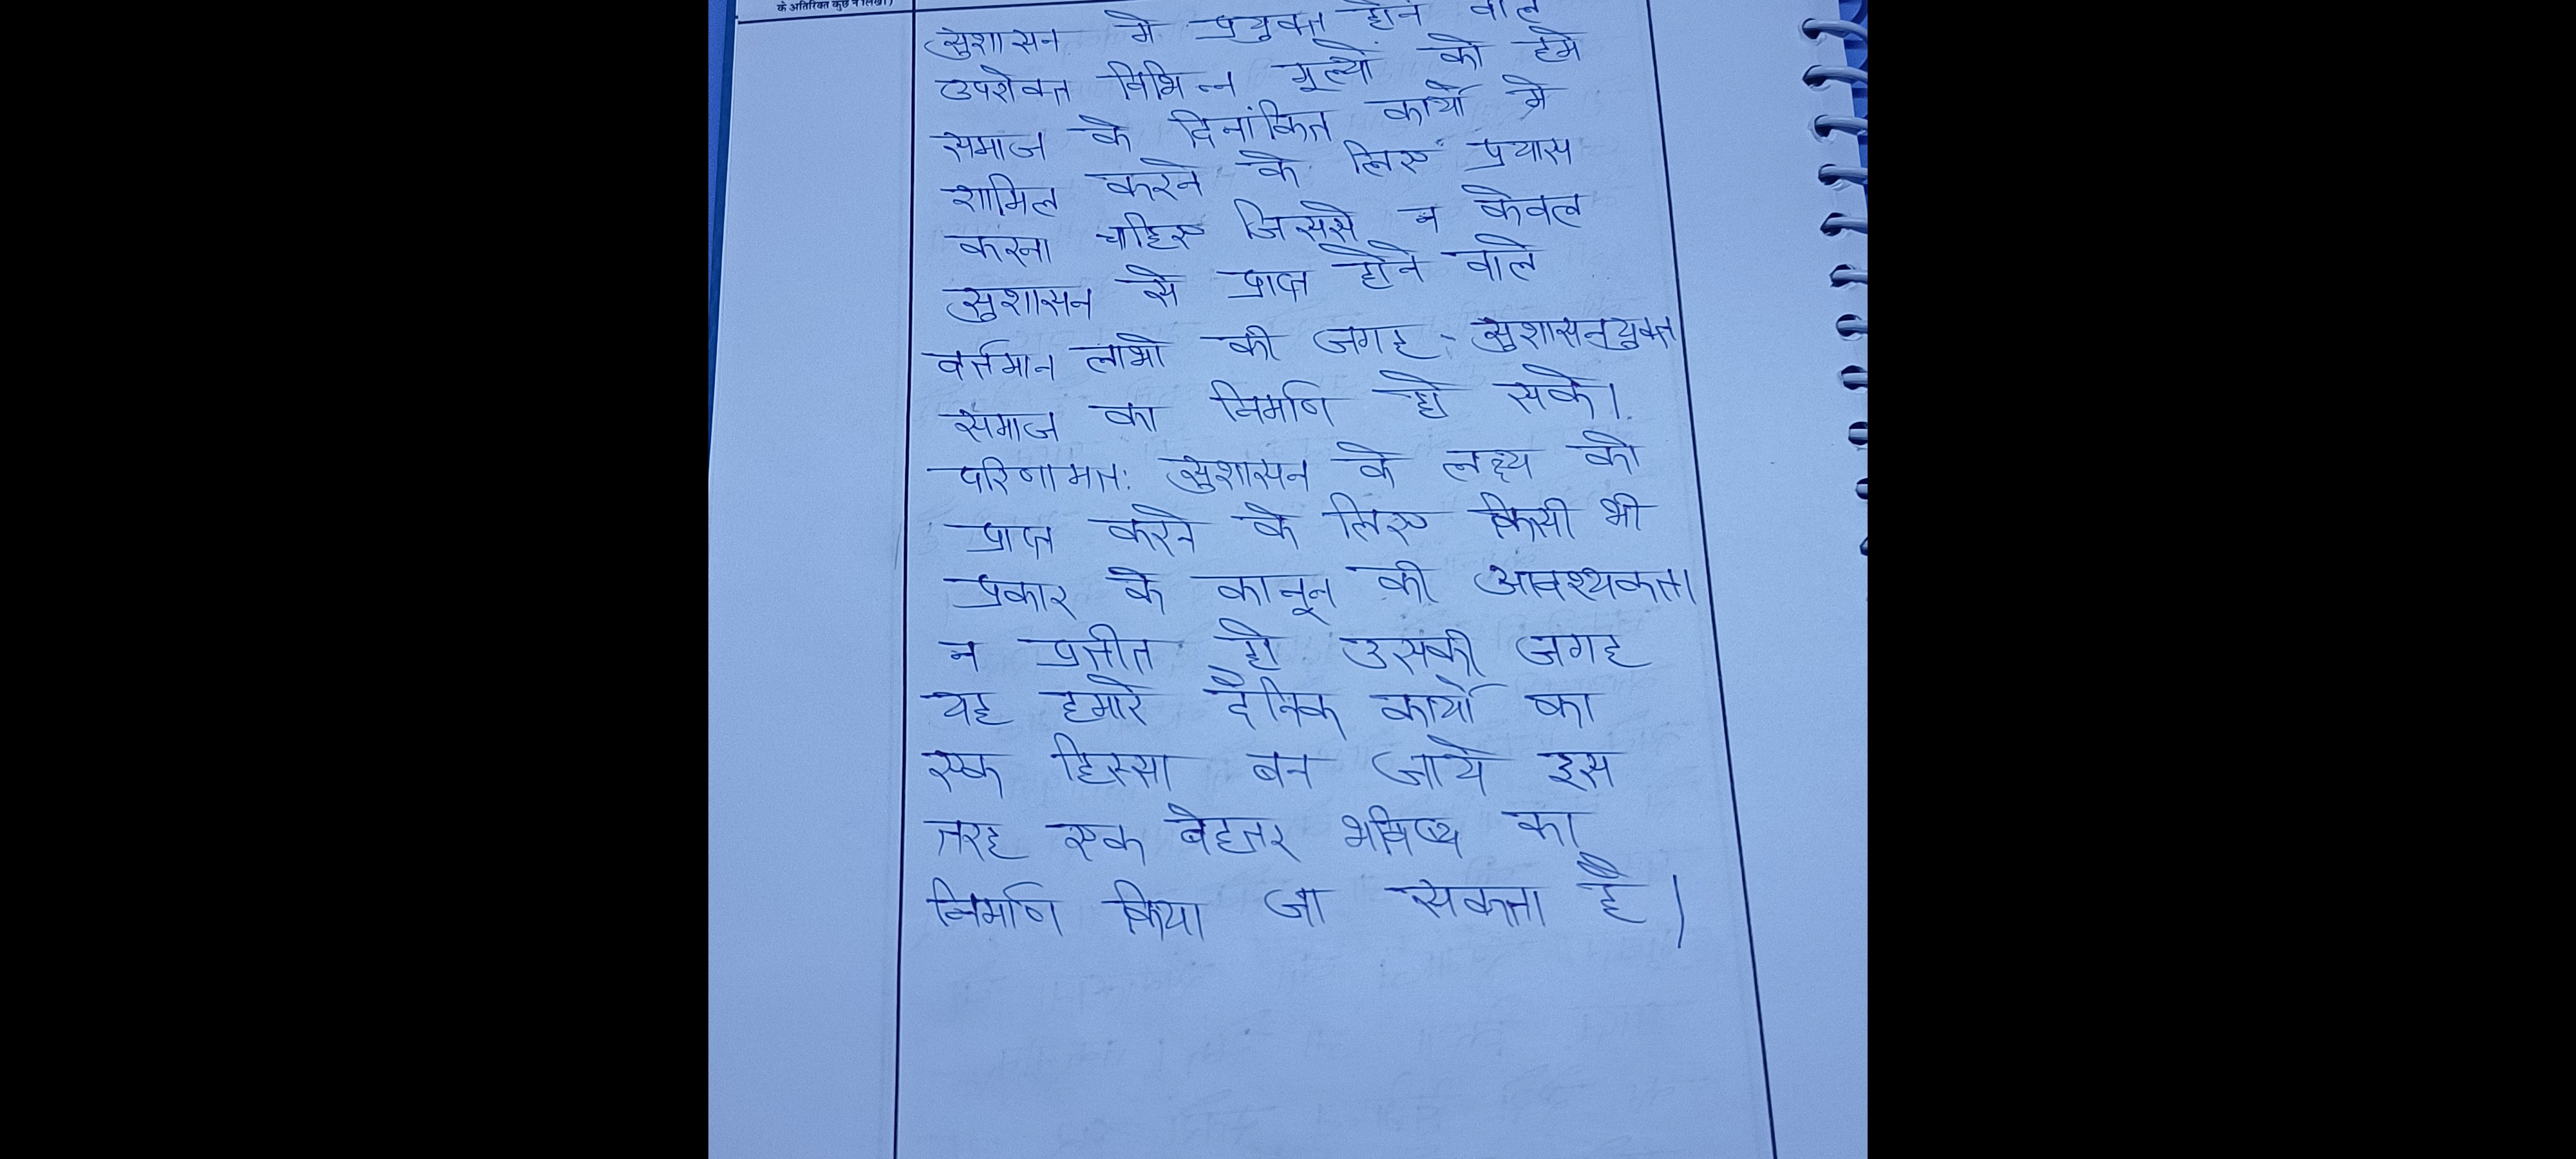 के अतिरिक्त कुछ न लिखें)
सुशासन मे प्रयुक्त होने वाले
उपरोक्त विभिन्न मूल्यों को हमे
समाज के दिनांकित कार्यो मे
शामिल करने के लिए प्रयास
करना चाहिए जिससे न केवल
सुशासन से प्राप्त होने वाले
वर्तमान लाभो की जगह - सुशासनयुक्त
समाज का निर्माण हो सके।
परिणामतः सुशासन के लक्ष्य को
प्राप्त करने के लिए किसी भी
प्रकार के कानून की आवश्यकता
न प्रतीत हो उसकी जगह
यह हमारे दैनिक कार्यो का
एक हिस्सा बन जाये इस
तरह एक बेहतर भविष्य का
निर्माण किया जा सकता है।